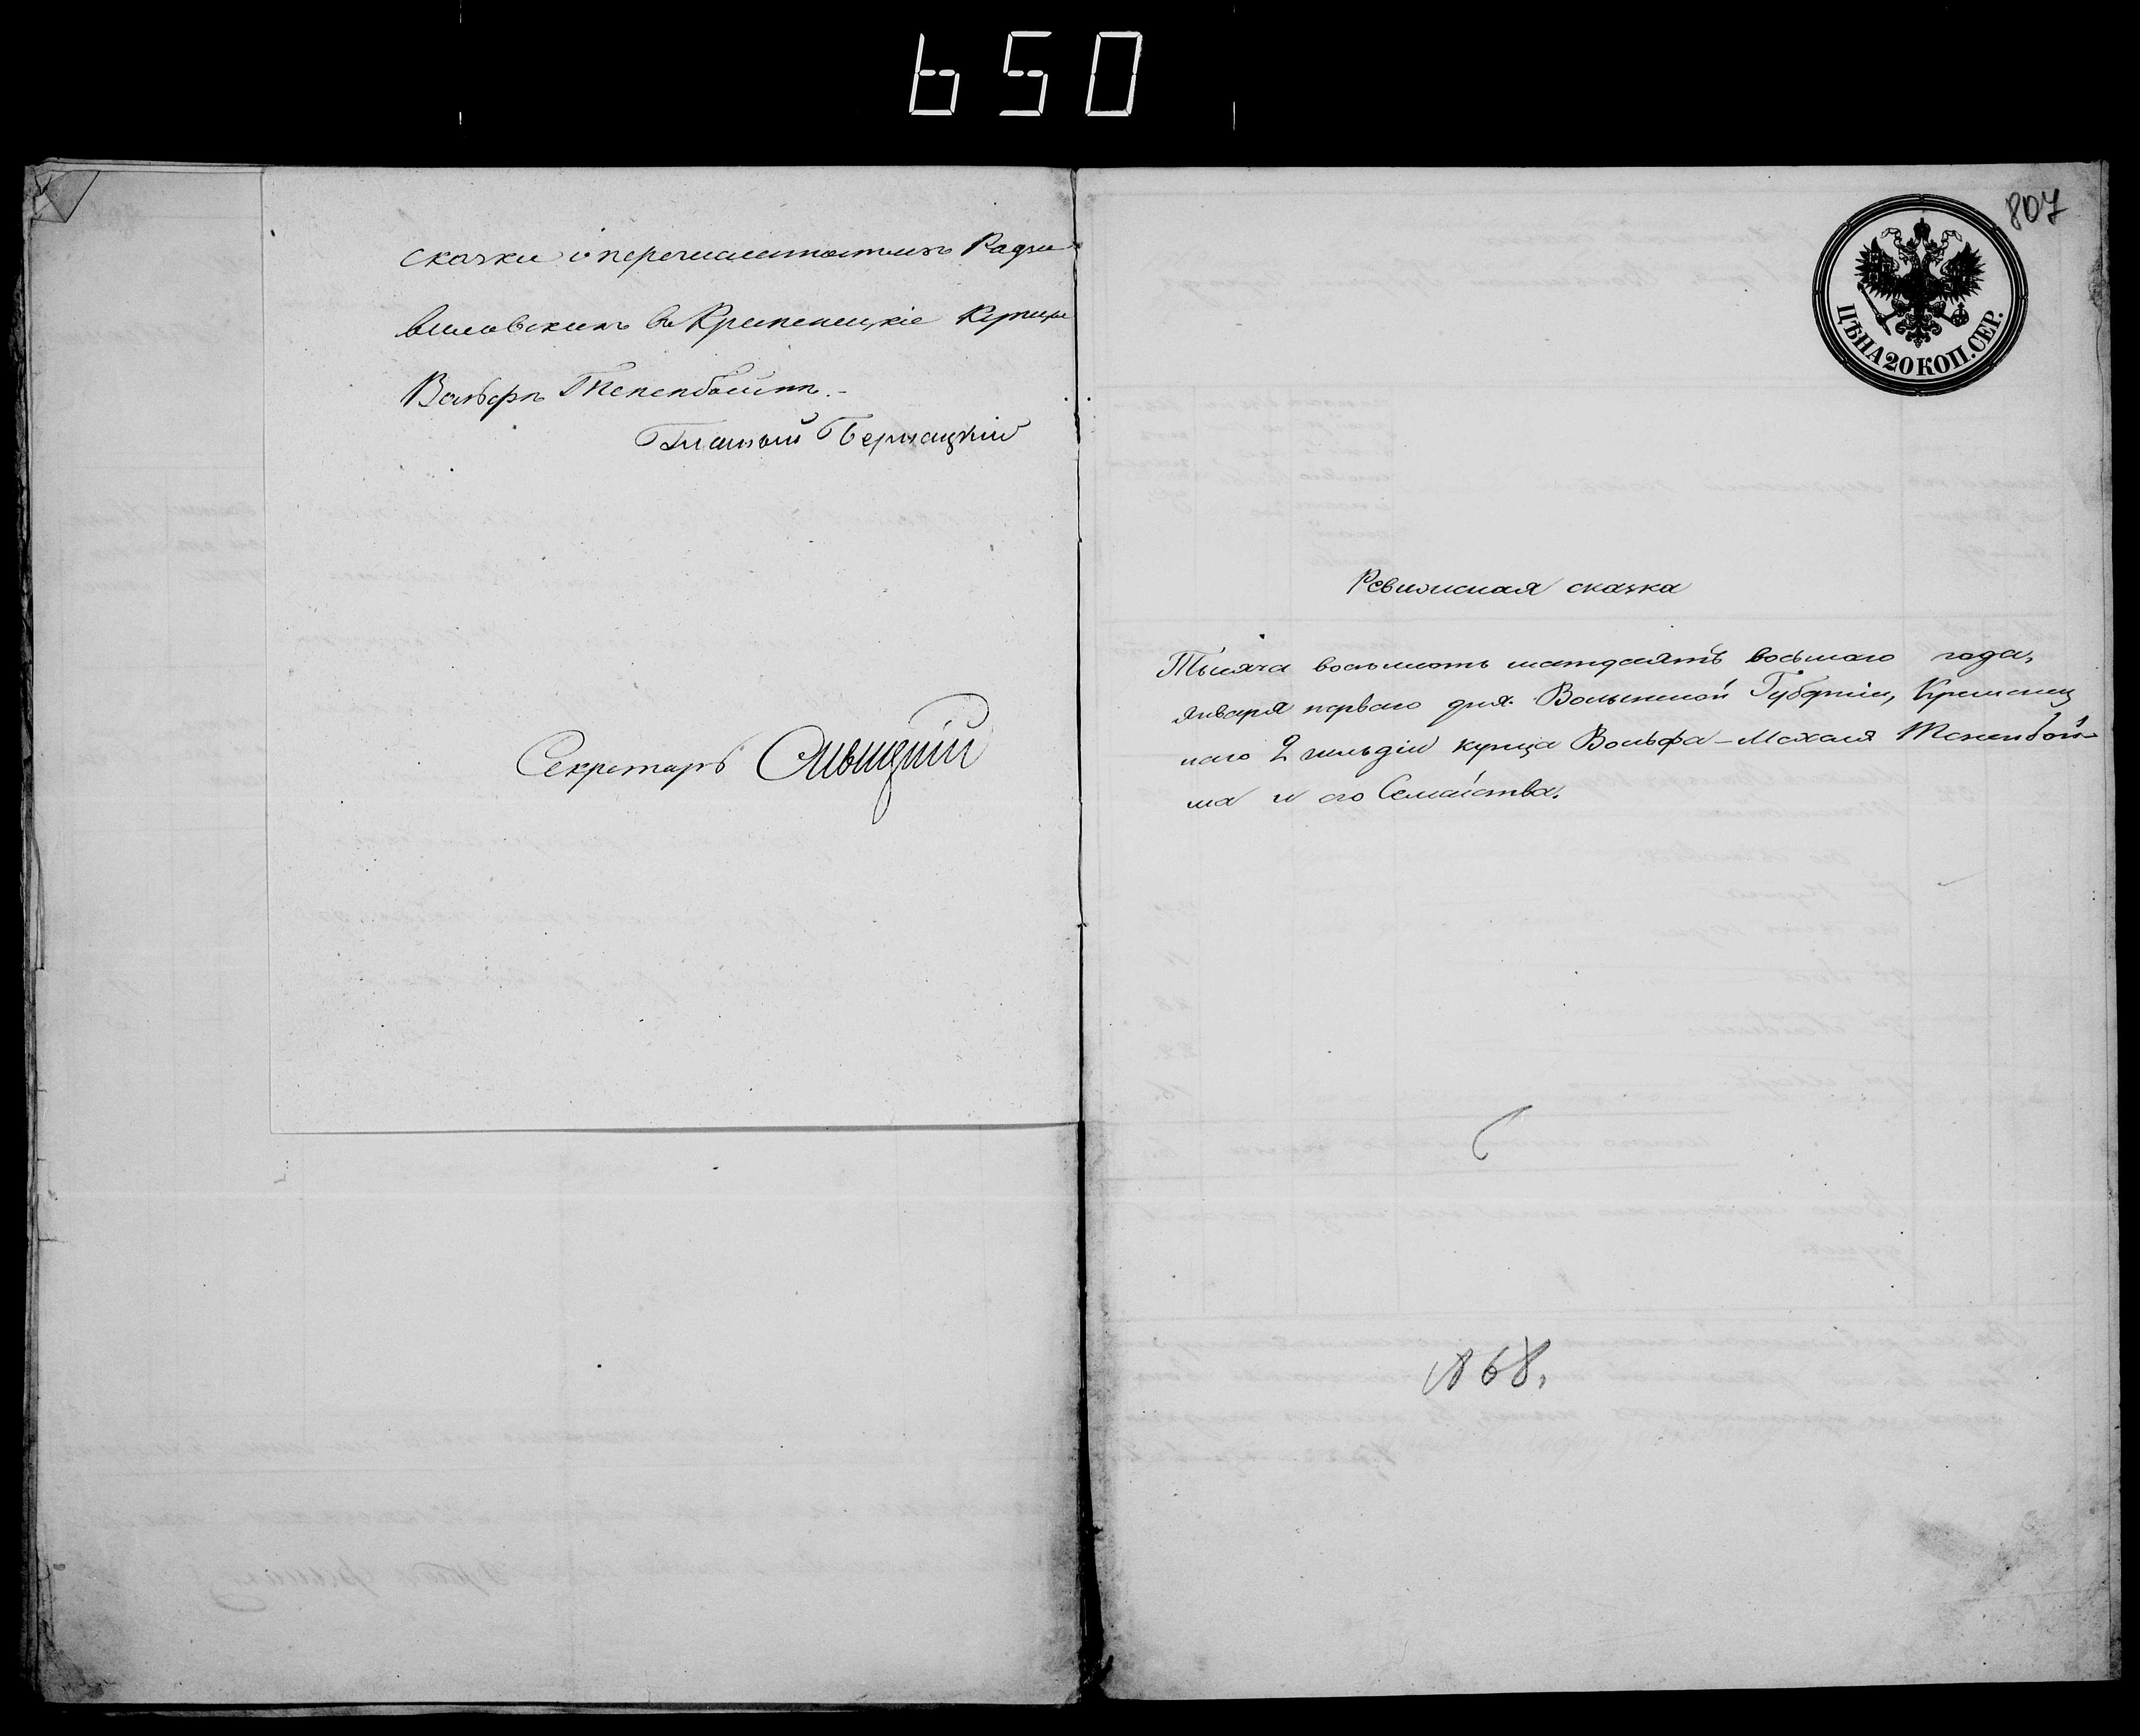 650
сказки о перечислившемся Радзи
виловскихъ въ Кременецкіе Купцы
Вольфъ Тененбоймъ.-
Гласный Бернацкій
Секретарь
807
ЦѢНА 20 КОП. СЕР.
Ревизская сказка
Тысяча восемьсотъ пятдесятъ восьмаго года,
Января перваго дня Волынской Губерніи, Кременец
каго 2 гильдіи купца Вольфа-Мехеля Тененбой-
ма и его Семейства.
1868,